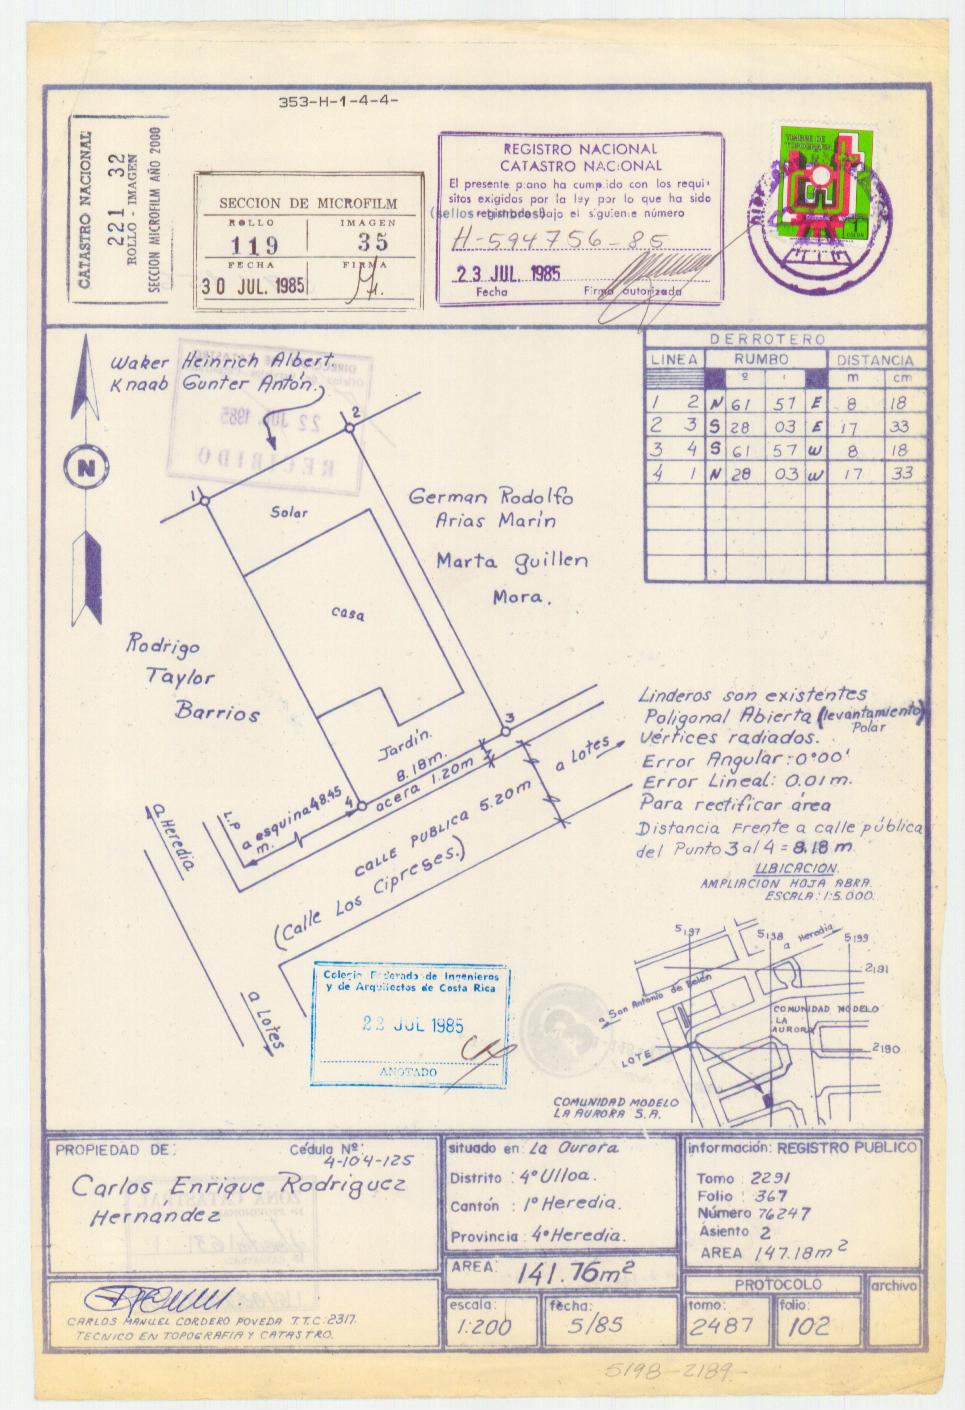 353-H-1-4-4-
CATASTRO NACIONAL
221 32
ROLLO - IMAGEN
SECCION MICROFILM AÑO 2000
SECCION DE MICROFILM
ROLLO IMAGEN
119 35
FECHA FIRMA
30 JUL. 1985
REGISTRO NACIONAL
CATASTRO NACIONAL
El presente plano ha cumplido con los requi-
sitos exigidos por la ley por lo que ha sido
registrado bajo el siguiente número
(sellos-timbres)
H-594756-85
23 JUL. 1985
Fecha Firma autorizada
TIMBRE DE
TOPOGRAFIA
1
COLON
Waker Heinrich Albert.
Knaab Gunter Antón.
22 JUL 1985
RECIBIDO
N
DERROTERO
LINEA RUMBO DISTANCIA
º ' m cm
1 2 N 61 57 E 8 18
2 3 S 28 03 E 17 33
3 4 S 61 57 W 8 18
4 1 N 28 03 W 17 33
2
1
Solar
German Rodolfo
Arias Marín
Marta Guillen
Mora.
Casa
Rodrigo
Taylor
Barrios
3
Jardín.
8.18m.
acera 1.20m
4
a Lotes
L.P
a esquina 48.45
m.
CALLE PUBLICA 5.20m
(Calle Los Cipreses.)
a Heredia
a Lotes
Linderos son existentes
Poligonal Abierta (levantamiento)
Polar
Vértices radiados.
Error Angular: 0°00'
Error Lineal: 0.01m.
Para rectificar área
Distancia Frente a calle pública
del Punto 3 al 4 = 8.18 m
UBICACION.
AMPLIACION HOJA ABRA.
ESCALA: 1:5.000.
5197 5198 5199
a Heredia
2191
a San Antonio de Belén
COMUNIDAD MODELO
LA
AURORA
2190
LOTE
COMUNIDAD MODELO
LA AURORA S.A.
Colegio Federado de Ingenieros
y de Arquitectos de Costa Rica
22 JUL 1985
ANOTADO
PROPIEDAD DE: Cédula Nº:
4-104-125
Carlos Enrique Rodriguez
Hernández
situado en: La Aurora
Distrito : 4º Ulloa.
Cantón : 1º Heredia.
Provincia : 4º Heredia.
AREA: 141.76m²
escala: 1:200
fecha: 5/85
información: REGISTRO PUBLICO
Tomo : 2291
Folio : 367
Número 76247
Asiento 2
AREA 147.18m²
PROTOCOLO
tomo: 2487
folio: 102
archivo
CARLOS MANUEL CORDERO POVEDA T.T.C: 2317.
TECNICO EN TOPOGRAFIA Y CATASTRO.
5198-2189-